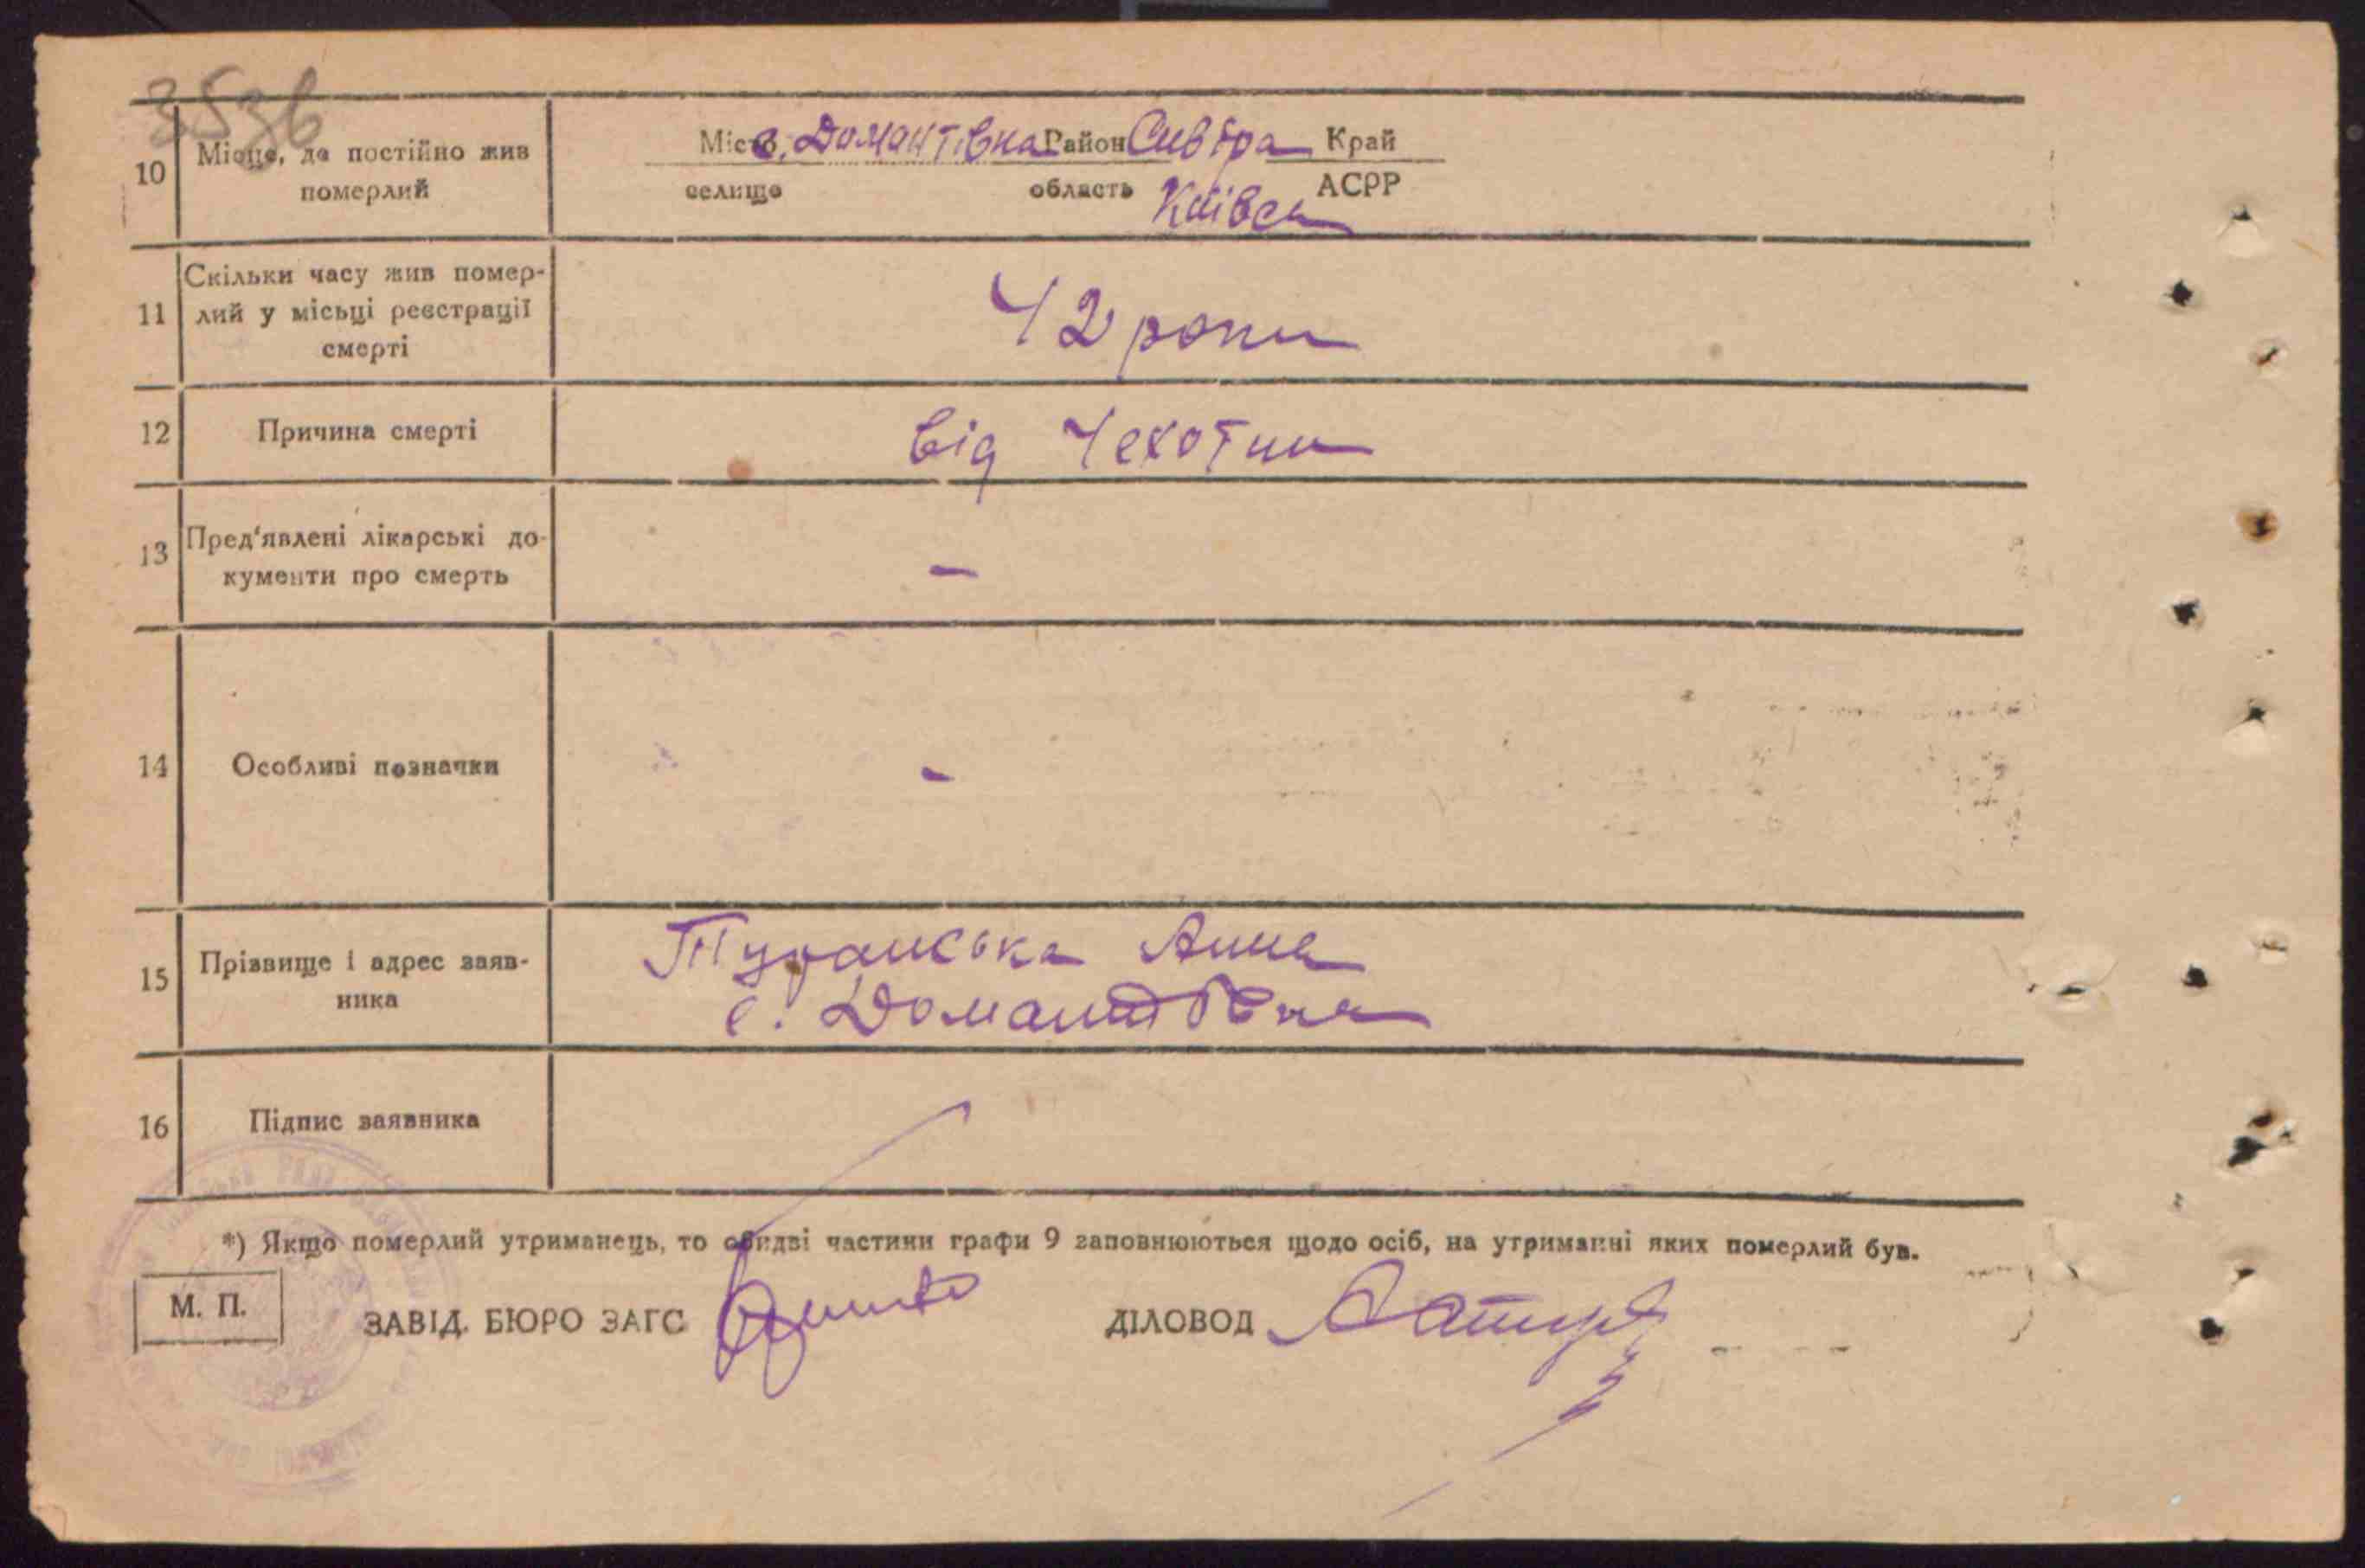 3536
10 Місце, де постійно жив померлий
Місто с. Домантівка Район Сквіра Край
селище область Київск АСРР
11 Скільки часу жив помер-
лий у місьці реєстрації
смерті
42 роки
12 Причина смерті
від Чехотки
13 Пред'явлені лікарські до-
кументи про смерть
-
14 Особливі позначки
-
15 Прізвище і адрес заяв-
ника
Туранська Анна
с. Домантівка
16 Підпис заявника
*) Якщо померлий утриманець, то обидві частини графи 9 заповнюються щодо осіб, на утриманні яких померлий був.
М. П.
ЗАВІД. БЮРО ЗАГС ДІЛОВОД